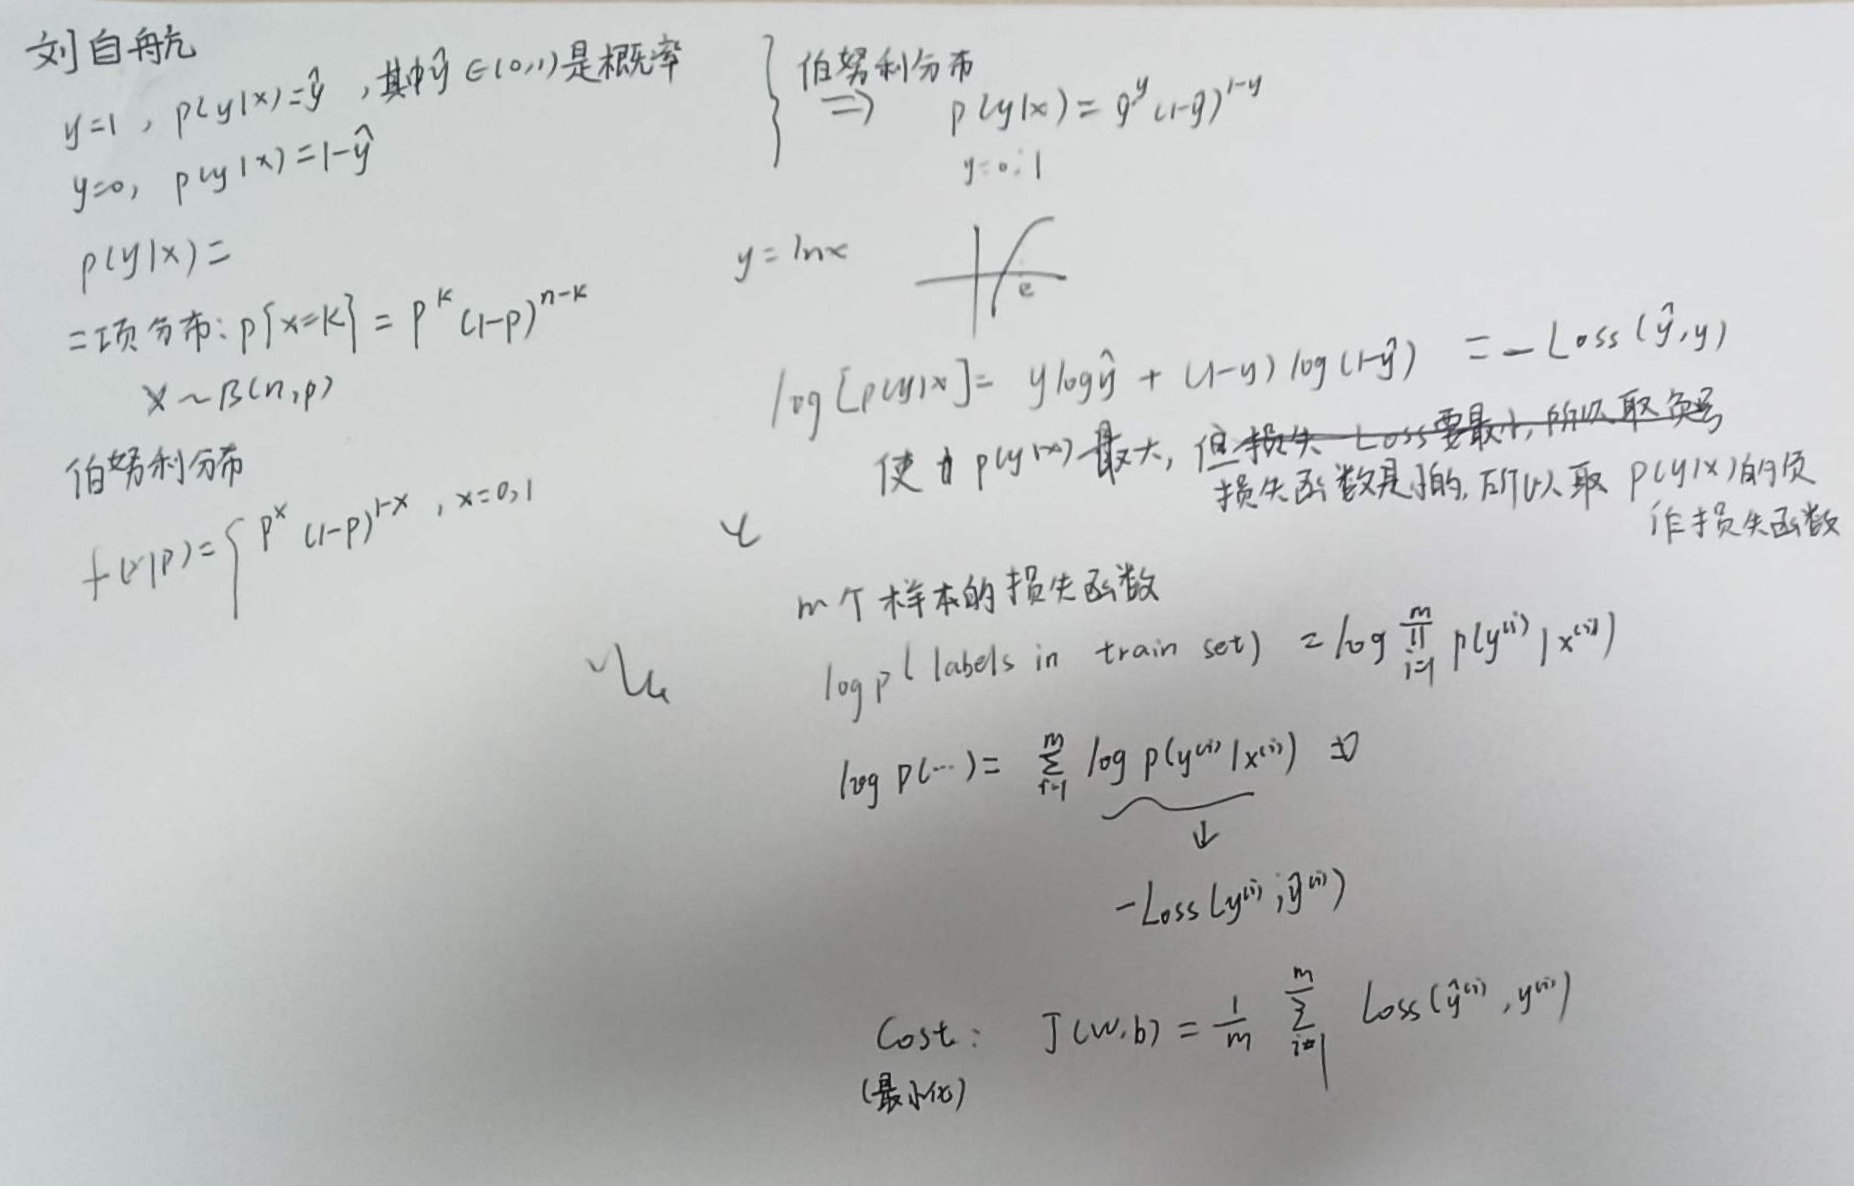 刘自航
y=1, p(y|x)=ŷ, 其中ŷ∈(0,1)是概率
y=0, p(y|x)=1-ŷ
p(y|x)=
二项分布: p{x=k} = p^k (1-p)^{n-k}
X~B(n,p)
伯努利分布
f(x|p)={ p^x (1-p)^{1-x}, x=0,1
} 伯努利分布
=> p(y|x) = ŷ^y (1-ŷ)^{1-y}
y=0,1
y=lnx
e
log[p(y|x]= ylogŷ + (1-y)log(1-ŷ) = -Loss(ŷ,y)
使 p(y|x)最大, 但损失 Loss要最小, 所以取负号
损失函数是小的, 所以取 p(y|x)的负
作损失函数
m个样本的损失函数
log p(labels in train set) = log ∏_{i=1}^{m} p(y^{(i)}|x^{(i)})
log p(…)= ∑_{i=1}^{m} log p(y^{(i)}|x^{(i)})
↓
-Loss(y^{(i)};ŷ^{(i)})
Cost: J(w,b) = 1/m ∑_{i=1}^{m} Loss(ŷ^{(i)},y^{(i)})
(最小化)